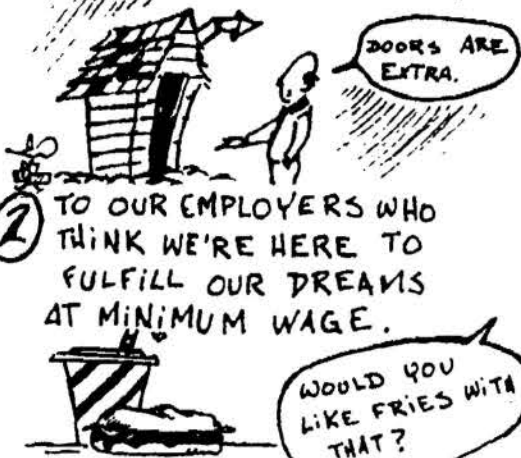 DOORS ARE
EXTRA.
2 TO OUR EMPLOYERS WHO
THINK WE'RE HERE TO
FULFILL OUR DREAMS
AT MINIMUM WAGE.
WOULD YOU
LIKE FRIES WITH
THAT?